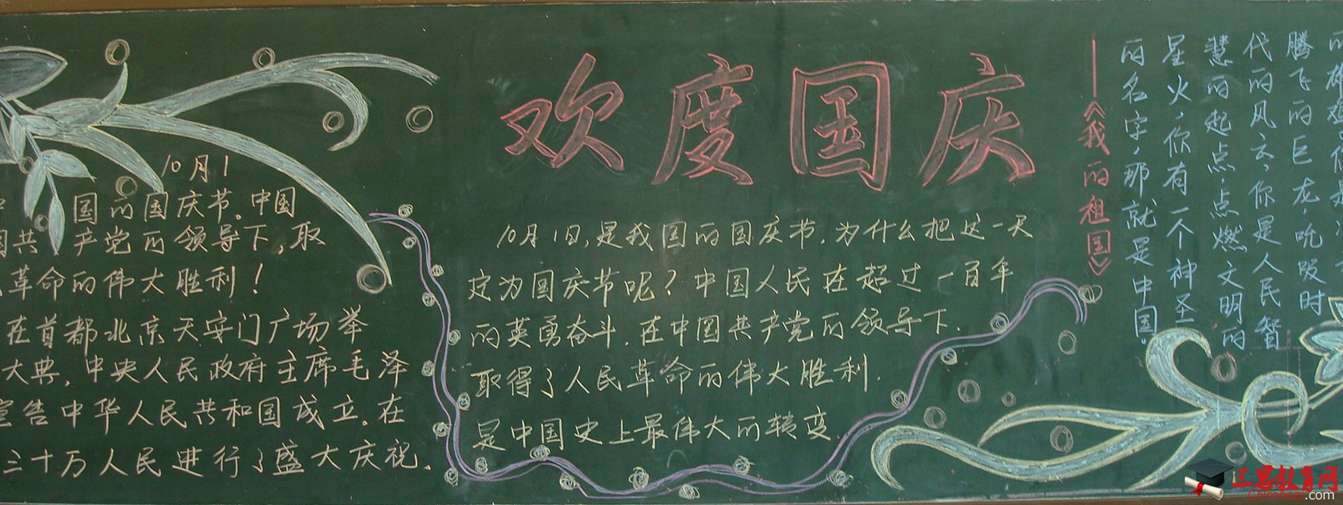 欢度国庆
10月1
国的国庆节。中国
共产党的领导下,取
革命的伟大胜利!
在首都北京天安门广场举
大典,中央人民政府主席毛泽
宣告中华人民共和国成立。在
三十万人民进行了盛大庆祝,
10月1日,是我国的国庆节,为什么把这一天
定为国庆节呢?中国人民在超过一百年
的英勇奋斗,在中国共产党的领导下,
取得了人民革命的伟大胜利,
是中国史上最伟大的转变,
腾飞的巨龙,吮吸时
代的风云,你是人民智
慧的起点点燃文明的
星火,你有一个神圣
的名字,那就是中国。
——《我的祖国》
三思教育网
.com